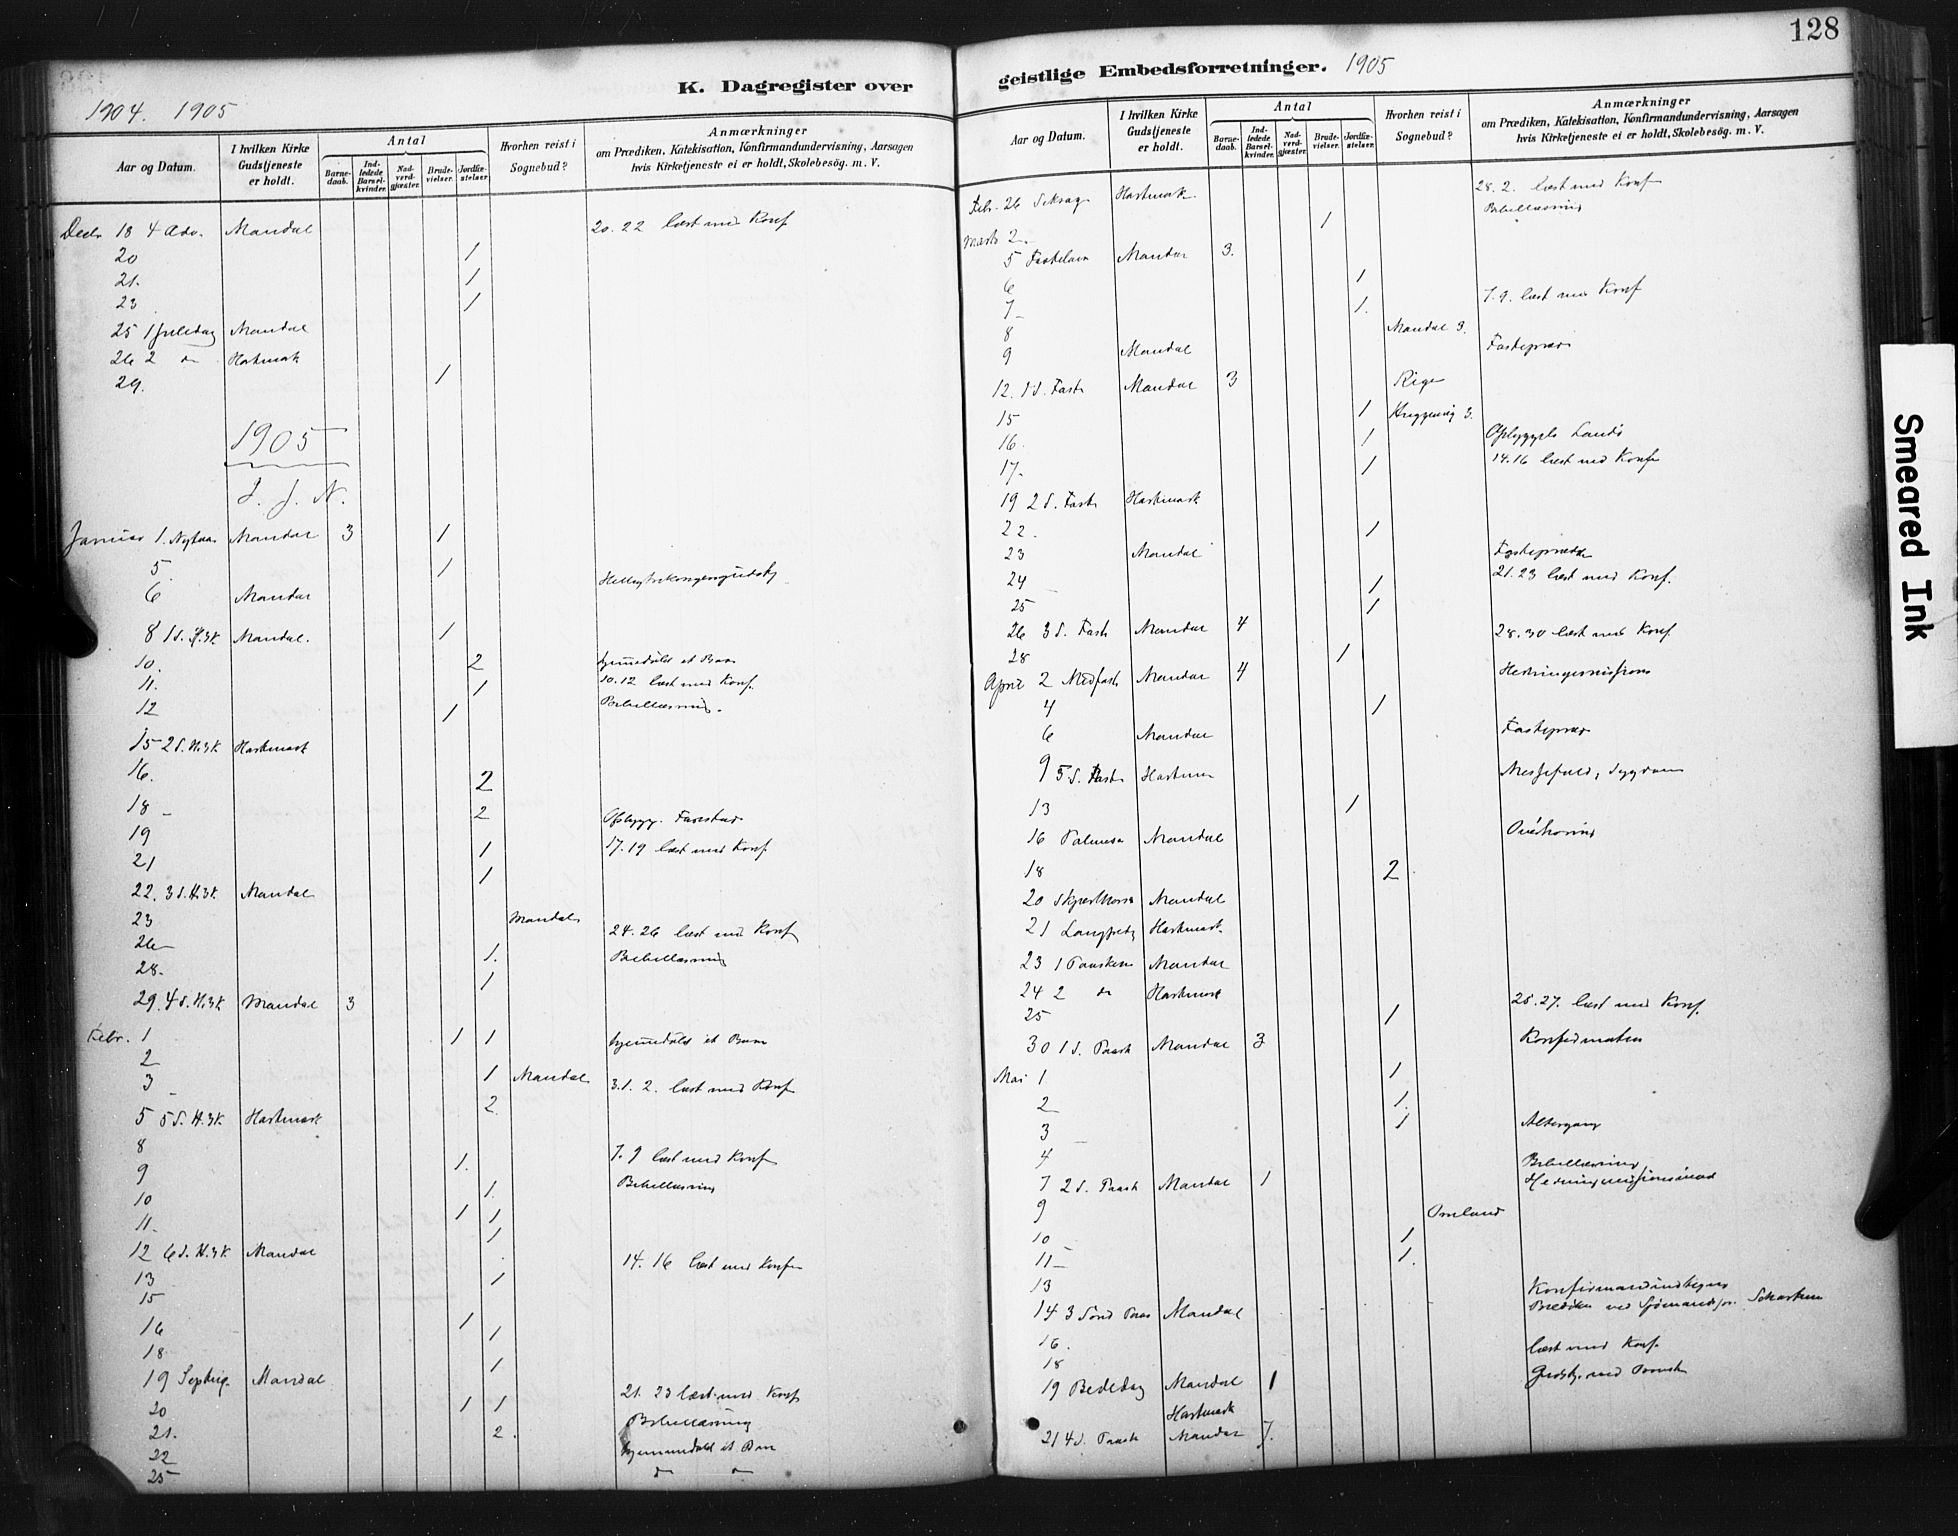 128
K. Dagregister over
1904. 1905
Aar og Datum.
I hvilken Kirke Gudstjeneste er holdt.
Antal
Barnedaab.
Indledede Barselkvinder.
Nadverdgjæster.
Brudevielser.
Jordfæstelser
Hvorhen reist i Sognebud?
Anmærkninger
om Prædiken, Katekisation, Konfirmandundervisning, Aarsagen
hvis Kirketjeneste ei er holdt, Skolebesøg. m. V.
Decbr 18 4 Adv. Mandal 20. 22 læst med Konf
20 1
21. 1
23 1
25 1 Juledag Mandal
26 2 do Hartmark
29. 1
1905
I. J. N.
Januar 1. Nytaar Mandal 3 1
5. 1
6 Mandal
8 1 S. H.3K. Mandal. 1
10. 2 hjemmedøbt et Barn
11. 1 10. 12 læst med Konf.
12 1 Bibellæsning.
15 2 S. H.3K Hartmark
16. 2
18 2 Opbygg.
19 17. 19 læst med Konf
21 1
1
22. 3 S. H.3K. Mandal
23 Mandal
26 1. 24. 26 læst med Konf
28. 1 Bibellæsning
29. 4 S. H.3K Mandal 3
Febr. 1 1 1 hjemmedøbt et Barn
2
3 1 Mandal 3.1. 2. læst med Konf
2.
5 5 S. H.3K. Hartmark
8
9 1. 7. 9 læst med Konf
10 1. Bibellæsning
11. 1 1
1
12 6 S. H.3K. Mandal 14. 16 læst med Konf
13 1
15
16 1
18 1
19 Septuag. Mandal 1
20 1 1 21. 23 læst med Konf
21. 2. Bibellæsning
22 hjemmedøbt et Barn
25 do do
geistlige Embedsforretninger. 1905
Aar og Datum.
I hvilken Kirke Gudstjeneste er holdt.
Antal
Barnedaab.
Indledede Barselkvinder.
Nadverdgjæster.
Brudevielser.
Jordfæstelser.
Hvorhen reist i Sognebud?
Anmærkninger
om Prædiken, Katekisation, Konfirmandundervisning, Aarsagen
hvis Kirketjeneste ei er holdt, Skolebesøg. m. V.
Febr. 26 Seksag Hartmark 28. 2. læst med Konf
Bibellæsning
Marts 2. 1
5 Fastelavn Mandal 3.
6 1
7 1. 7. 9. læst med Konf
8 Mandal 3.
9 Mandal Fastepræd
12. 1 S. Faste Mandal 3
15 1
16. 1 Opbyggels
17. 1 14. 16 læst med Konf
19 2 S. Faste Hartmark
22. 1
23 Mandal
24 1 21. 23 læst med Konf.
25 1
26 3 S. Faste Mandal 4 28. 30 læst med Konf
28 1
April 2 Midfaste Mandal 4 Hedningemissions
4 1
6 Mandal Fastepræd
9 5 S. Faste Messefald, Sygdom
13 1
16 Palmes Mandal
18 2
20 Skjærthors Mandal
21 Langfredag Hartmark
23 1 Paaske Mandal
24 2 do Hartmark
25 1 25. 27. læst med Konf.
30 1 S. Paask Mandal 3
Mai 1 1
2 1.
3 1 Altergang
4 Bibellæsning
7 2 S. Paask Mandal 1
9
10 1
11 1.
13
14 3 Sønd Paas Mandal
16. læst med Konf.
18
19 Bededag Mandal 1
Hartmark
21 4 S. Paask Mandal 7.
Smeared Ink